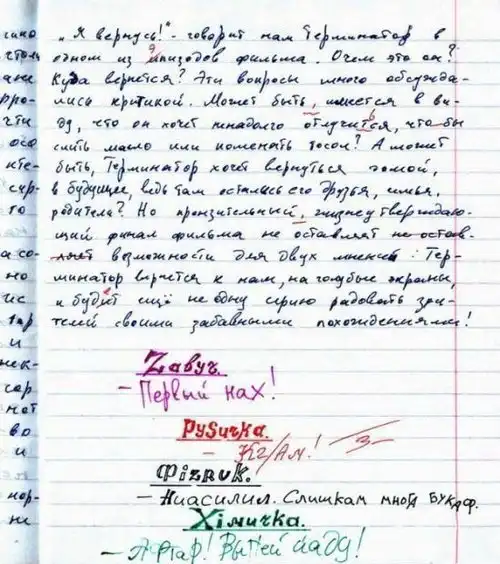 „Я вернусь!"- говорит нам Терминатор в
одном из эпизодов фильма. Очем это он?
Куда вернется? Эти вопросы много обсужда-
лись критикой. Может быть, имеется в ви-
ду, что он хочет ненадолго отлучится, что бы
слить масло или поменять тосол? А может
быть, Терминатор хочет вернуться домой,
в будущее, ведь там остались его друзья, семья,
родители? Но пронзительный, жизнеутверждаю-
щий финал фильма не оставляет не остав-
ляет возможности для двух мнений: Тер-
минатор вернется к нам, на голубые экраны,
и будит ещё не одну серию радовать зри-
телей своими забавными похождениями!
Zавуч.
- Первый нах!
РуSичка.
- КГ/Ам! 3-
Физruk.
- Ниасилил. Слишкам многа букаф.
Хiмичка.
- Афтар! Выпей йаду!